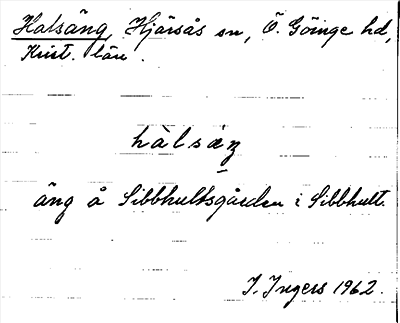 Halsäng, Hjärsås sn, Ö. Göinge hd,
Krist. län.
hàlsäŋ
äng å Sibbhultsgården i Sibbhult.
I. Ingers 1962.